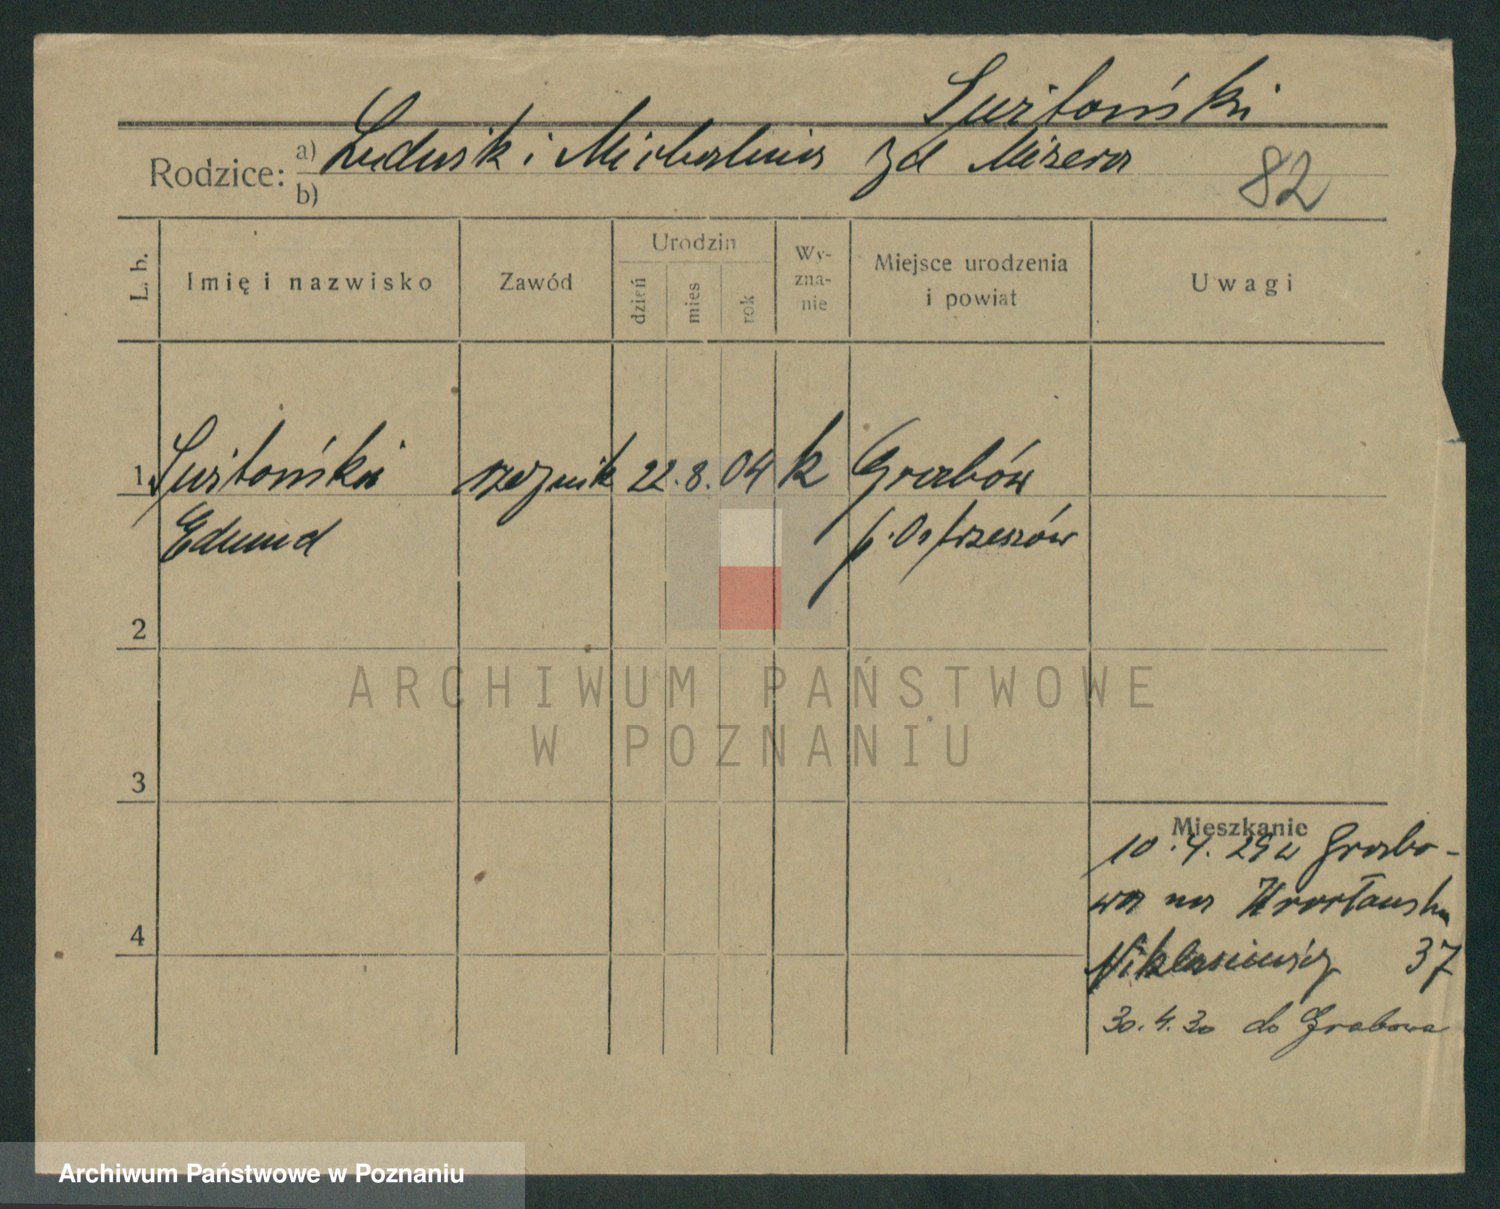 Switoński
Rodzice: a) Ludwik i Michalina zd Mizera
b)
82
L. b.
Imię i nazwisko
Zawód
Urodzin
dzień
mies
rok
Wy-
zna-
nie
Miejsce urodzenia
i powiat
Uwagi
1 Switoński rzeźnik 22.8.04 k Grabów
Edmund p. Ostrzeszów
2
3
4
Mieszkanie
10.4.29 z Grabo-
wa na
37
30.4.30 do Grabowa
ARCHIWUM PAŃSTWOWE
W POZNANIU
Archiwum Państwowe w Poznaniu